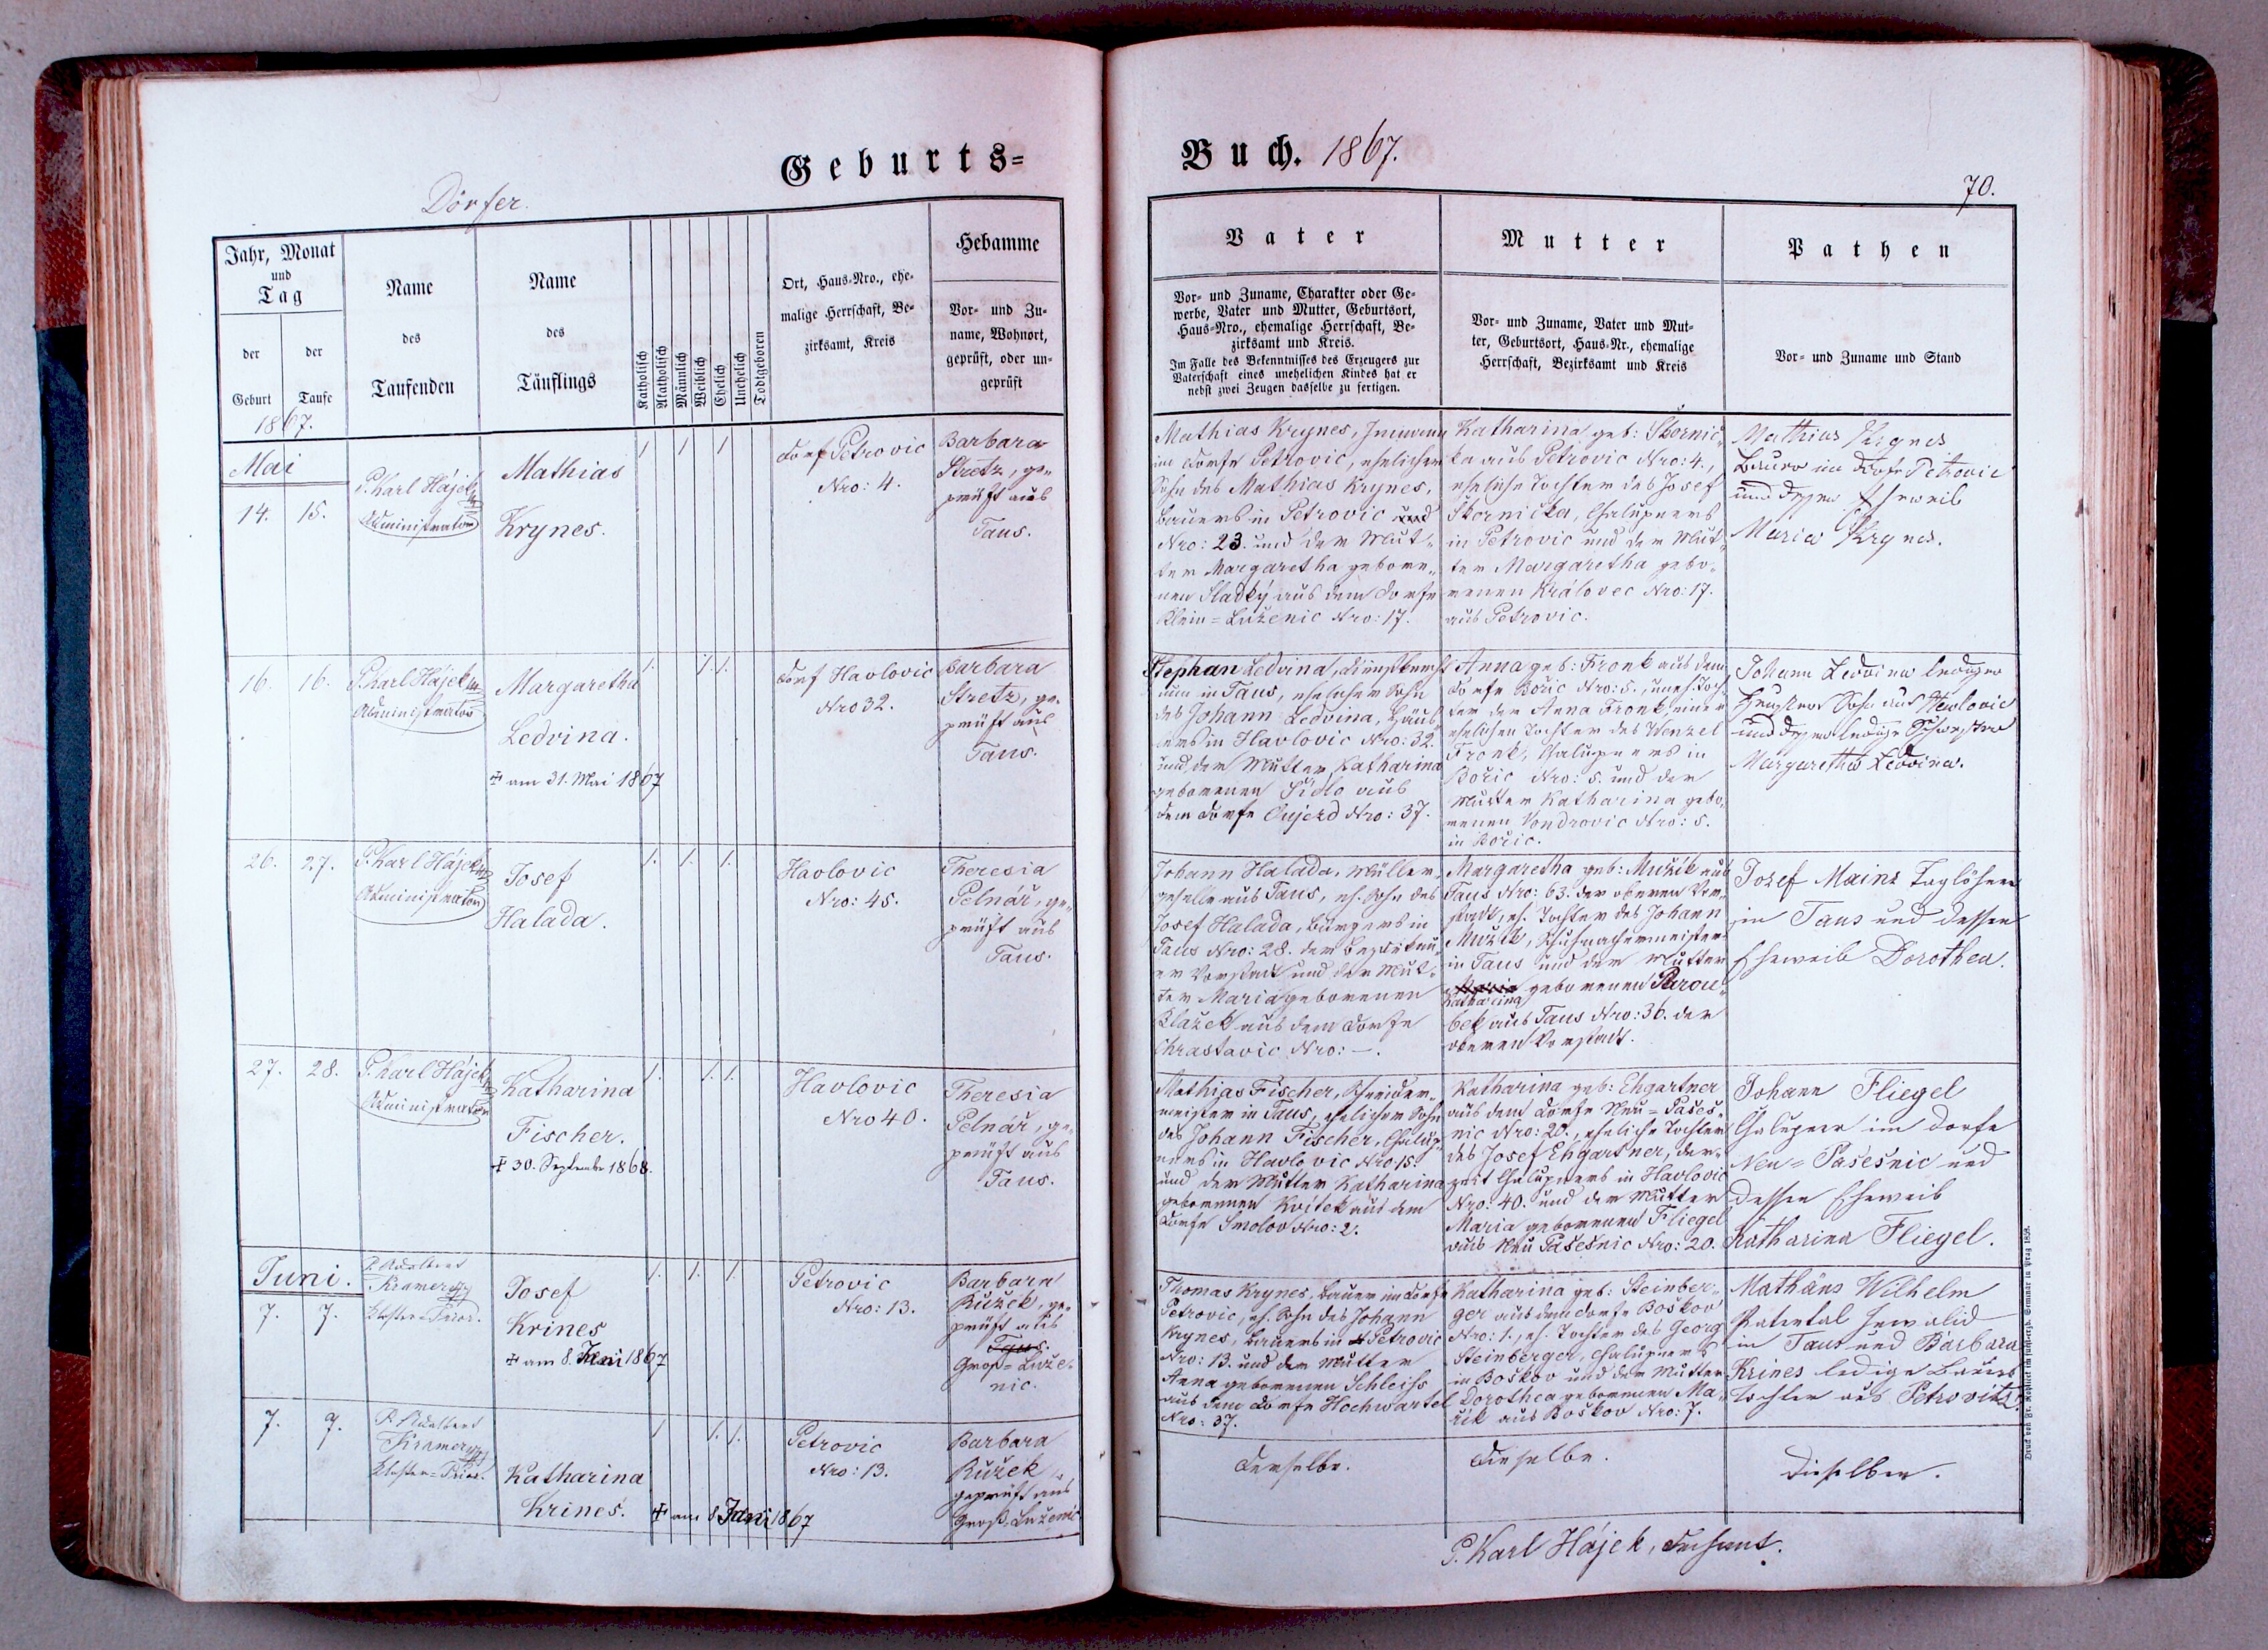 Geburts=
Dörfer.
Jahr, Monat
und
Tag
der
Geburt
der
Taufe
Name
des
Taufenden
Name
des
Täuflings
Katholisch
Akatholisch
Männlich
Weiblich
Ehelich
Unehelich
Todtgeboren
Ort, Haus=Nro., ehe=
malige Herrschaft, Be=
zirksamt, Kreis
Hebamme
Vor= und Zu=
name, Wohnort,
geprüft, oder un=
geprüft
1867.
Mai
14. 15.
P. Karl Hájek
Administrator
Mathias
Krynes.
1 1 1
Dorf Petrovic
Nro: 4.
Barbara
Stretz, ge=
prüft aus
Taus.
16. 16.
P. Karl Hájek
Administrator
Margaretha
Ledvina.
† am 31. Mai 1867
1. 1. 1.
Dorf Havlovic
Nro 32.
Barbara
Stretz, ge=
prüft aus
Taus.
26. 27.
P. Karl Hájek
Administrator
Josef
Halada.
1. 1. 1.
Havlovic
Nro: 45.
Theresia
Pelnář, ge=
prüft aus
Taus.
27. 28.
P. Karl Hájek
Administrator
Katharina
Fischer.
† 30. September 1868.
1. 1. 1.
Havlovic
Nro 40.
Theresia
Pelnář, ge=
prüft aus
Taus.
Juni.
7. 7.
P. Adalbert
Kramer
Kloster=Prior.
Josef
Krines
† am 8. Juni 1867
1. 1. 1.
Petrovic
Nro: 13.
Barbara
Ružek, ge=
prüft aus
Taus.
Groß=Luže=
nic.
7. 9.
P. Adalbert
Kramer
Kloster=Prior.
Katharina
Krines.
† am 8 Juni 1867
1 1. 1.
Petrovic
Nro: 13.
Barbara
Ružek,
geprüft aus
Groß Luženic
Buch. 1867.
70.
Vater
Vor= und Zuname, Charakter oder Ge=
werbe, Vater und Mutter, Geburtsort,
Haus=Nro., ehemalige Herrschaft, Be=
zirksamt und Kreis.
Im Falle des Bekenntnisses des Erzeugers zur
Vaterschaft eines unehelichen Kindes hat er
nebst zwei Zeugen dasselbe zu fertigen.
Mutter
Vor= und Zuname, Vater und Mut=
ter, Geburtsort, Haus=Nr., ehemalige
Herrschaft, Bezirksamt und Kreis
Pathen
Vor= und Zuname und Stand
Mathias Krynes, Inmann
im Dorfe Petrovic, ehelicher
Sohn des Mathias Krynes,
Bauers in Petrovic und
Nro: 23. und der Mut=
ter Margaretha gebore=
nen Sladký aus dem Dorfe
Klein=Luženic Nro: 17.
Katharina geb: Skornič=
ka aus Petrovic Nro: 4.,
eheliche Tochter des Josef
Skornička, Chalupners
in Petrovic und der Mut=
ter Margaretha gebo=
renen Královec Nro: 17.
aus Petrovic.
Mathias Krynes
Bauer im Dorfe Petrovic
und dessen Eheweib
Maria Krynes.
Stephan Ledvina, Dienstknecht
nun in Taus, ehelicher Sohn
des Johann Ledvina, Häus=
lers in Havlovic Nro: 32.
und der Mutter Katharina
geborenen Sidlo aus
dem Dorfe Oujezd Nro: 37.
Anna geb: Fronk aus dem
Dorfe Bořic Nro: 5., uneh. Toch=
ter der Anna Fronk, einer
ehelichen Tochter des Wenzel
Fronk, Chalupners in
Bořic Nro: 5. und der
Mutter Katharina gebo=
renen Vondrovic Nro: 5.
in Bořic.
Johann Ledvina lediger
Häuslers Sohn aus Havlovic
und dessen ledige Schwester
Margaretha Ledvina.
Johann Halada, Müller=
geselle aus Taus, eh. Sohn des
Josef Halada, Bürgers in
Taus Nro: 28. der
er Vorstadt und der Mut=
ter Maria geborenen
Blažek aus dem Dorfe
Chrastavic Nro: —.
Margaretha geb: Mužík aus
Taus Nro: 63. der oberen Vor=
stadt, eh. Tochter des Johann
Mužík, Schuhmachermeister
in Taus und der Mutter
Maria geborenen Parou=
Katharina
bek aus Taus Nro: 36. der
oberen Vorstadt.
Josef Mainz Taglöhner
in Taus und dessen
Eheweib Dorothea.
Mathias Fischer, Schneider=
meister in Taus, ehelicher Sohn
des Johann Fischer, Chalup=
ners in Havlovic Nro 15.
und der Mutter Katharina
geborenen Kvítek aus dem
Dorfe Smolov Nro: 2.
Katharina geb: Ehgartner
aus dem Dorfe Neu=Pašeš=
nic Nro: 20., eheliche Tochter
des Josef Ehgartner, der=
zeit Chalupners in Havlovic
Nro: 40. und der Mutter
Maria geborenen Fliegel
aus Neu Pašešnic Nro: 20.
Johann Fliegel
Chalupner im Dorfe
Neu=Pašešnic und
dessen Eheweib
Katharina Fliegel.
Thomas Krynes, Bauer im Dorfe
Petrovic, eh. Sohn des Johann
Krynes, Bauers in Petrovic
Nro: 13. und der Mutter
Anna geborenen Schleiss
aus dem Dorfe Hochwartel
Nro: 37.
Katharina geb: Steinber=
ger aus dem Dorfe Boškov
Nro: 1., eh. Tochter des Georg
Steinberger, Chalupners
in Boškov und der Mutter
Dorothea geborenen Ma=
aus Boškov Nro: 7.
Mathäus Wilhelm
Patental Invalid
in Taus und Barbara
Krines ledige Bauers
tochter aus Petrovitz.
Derselbe.
Dieselbe.
Dieselben.
P. Karl Hájek, Dechant.